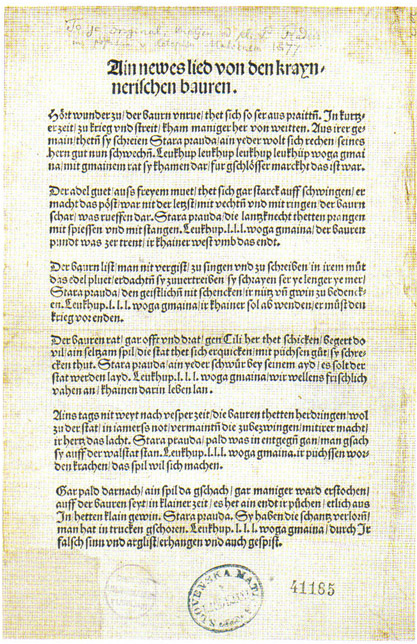 Ain newes lied von den krayn-
nerischen bauren.
Hört wunder zu/ der baurn vnrue/ thet sich so ser aus praittñ. In kurtz-
er zeit/ zu krieg vnd streit/ kham maniger her von weitten. Aus irer ge-
main/ thetñ sy schreien Stara prauda/ ain yeder wolt sich rechen/ seines
hern gut nun schwechñ. Leukhup leukhup leukhup leukhüp woga gmai
na/ mit gmainem rat sy khamen dar/ fur gschlösser marckht das ist war.
Der adel guet/ auss freyem muet/ thet sich gar starck auff schwingen/ er
macht das pöst/ war nit der letzst/ mit vechtñ vnd mit ringen/ der baurn
schar/ was rueffen dar. Stara prauda/ die lantzknecht thetten prangen
mit spiessen vnd mit stangen. Leukhup.l.l.l. woga gmaina/ der bauren
pundt was zer trent/ ir khainer west vmb das endt.
Der baurn list/ man nit vergist/ zu singen vnd zu schreiben/ in irem müt
das edel pluet/ erdachtñ sy zuuertreiben/ sy schrayen ser ye lenger ye mer/
Stara prauda/ den geistlichñ nit schencken/ ir nütz vñ gwin zu bedenck-
en. Leukhup.l.l.l. woga gmaina/ ir khainer sol ab wenden/ er müst den
krieg vorenden.
Der bauren rat/ gar offt vnd drat/ gen Cili her thet schicken/ begert do
vil/ ain seltzam spil/ die stat thet sich erquicken/ mit püchsen gůt/ sy schre-
cken thut. Stara prauda/ ain yeder schwür bey seinem ayd/ es solt der
stat werden layd. Leukhup.l.l.l. woga gmaina/ wir wellens frischlich
vahen an/ khainen darin leben lan.
Ains tags nit weyt nach vesper zeit/ die bauren thetten herdringen/ wol
zu der stat/ in iamers not/ vermaintñ die zubezwingen/ mit irer macht
ir hertz das lacht. Stara prauda/ pald was in entgegñ gan/ man gsach
sy auff der walstat stan. Leukhup.l.l.l. woga gmaina. ir püchssen wor-
den krachen/ das spil wil sich machen.
Gar pald darnach/ ain spil da gschach/ gar maniger ward erstochen/
auff der bauren seyt/ in klainer zeit/ es het ain endt ir püchen/ etlich aus
In hetten klain gewin. Stara prauda. Sy haben die schantz verlorñ/
man hat in trucken gschoren. Leukhup.l.l.l. woga gmaina/ durch Ir
falsch sinn vnd arglist/ erhangen vnd auch gespist.
SLOVENSKA MATI
41185